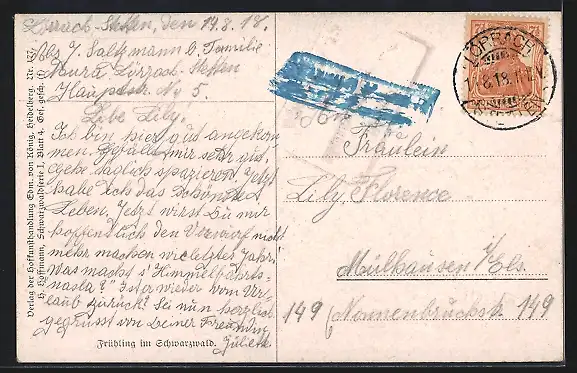 Lörrach-Stetten, den 14.8.18.
Abs. J. Saltzmann b. Familie
Laura, Lörrach-Stetten
Hauptstr. No 5
Liebe Lily!
Ich bin hier gut angekom
men. Gefällt mir sehr gut,
gehe täglich spazieren. Jetzt
habe ich das schönste
Leben. Jetzt wirst Du mir
hoffentlich den Vorwurf nicht
mehr machen wie letztes Jahr!
Was macht s'Himmelfahrts-
nasla?" Ist er wieder vom Ur-
laub zurück? Sei nun herzlich
gegrüsst von Deiner Freundin
Juliette
Frühling im Schwarzwald.
Verlag der Hofkunsthandlung Edm. von König, Heidelberg. Nr. 137.
H. Hoffmann, Schwarzwaldserie I, Blatt 4. Ges. gesch. (f)
LÖRRACH
Fräulein
Lily Florence
Mülhausen i/Els.
149 (Nonnenbruckstr. 149